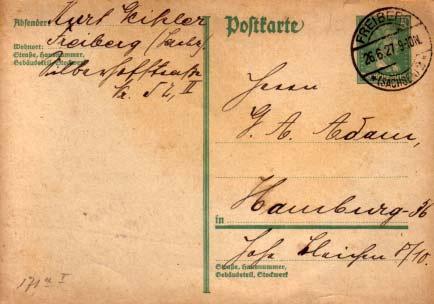 Absender:
Kurt Eichler
Freiberg (Sachs.)
Wohnort:
Straße, Hausnummer,
Gebäudeteil, Stockwerk
Silberhofstraße
Nr. 52, II
Postkarte
FREIBERG
26.6.27. 9-10N.
(SACHSEN)
Herrn
G. A. Adam,
Hamburg-36
in
Hohe Bleichen 8/10.
Straße, Hausnummer,
Gebäudeteil, Stockwerk